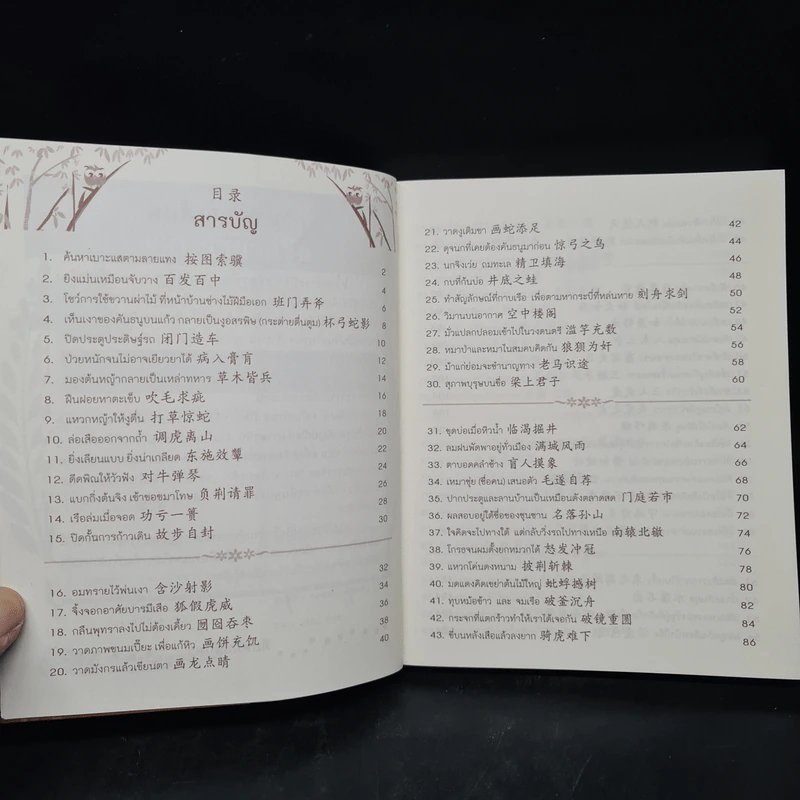 目录
สารบัญ
1. ค้นหาเบาะแสตามลายแทง 按图索骥 2
2. ยิงแม่นเหมือนจับวาง 百发百中 4
3. โชว์การใช้ขวานผ่าไม้ ที่หน้าบ้านช่างไม้ฝีมือเอก 班门弄斧 6
4. เห็นเงาของคันธนูบนแก้ว กลายเป็นงูอสรพิษ (กระต่ายตื่นตูม) 杯弓蛇影 8
5. ปิดประตูประดิษฐ์รถ 闭门造车 10
6. ป่วยหนักจนไม่อาจเยียวยาได้ 病入膏肓 12
7. มองต้นหญ้ากลายเป็นเหล่าทหาร 草木皆兵 14
8. ฝืนฝอยหาตะเข็บ 吹毛求疵 16
9. แหวกหญ้าให้งูตื่น 打草惊蛇 18
10. ล่อเสือออกจากถ้ำ 调虎离山 20
11. ยิ่งเลียนแบบ ยิ่งน่าเกลียด 东施效颦 22
12. ดีดพิณให้วัวฟัง 对牛弹琴 24
13. แบกกิ่งต้นจิง เข้าขอขมาโทษ 负荆请罪 26
14. เรือล่มเมื่อจอด 功亏一篑 28
15. ปิดกั้นการก้าวเดิน 故步自封 30
16. อมทรายไว้พ่นเงา 含沙射影 32
17. จิ้งจอกอาศัยบารมีเสือ 狐假虎威 34
18. กลืนพุทราลงไปไม่ต้องเคี้ยว 囫囵吞枣 36
19. วาดภาพขนมเปี๊ยะ เพื่อแก้หิว 画饼充饥 38
20. วาดมังกรแล้วเขียนตา 画龙点睛 40
21. วาดงูเติมขา 画蛇添足 42
22. ดุจนกที่เคยต้องคันธนูมาก่อน 惊弓之鸟 44
23. นกจิงเว่ย ถมทะเล 精卫填海 46
24. กบที่ก้นบ่อ 井底之蛙 48
25. ทำสัญลักษณ์ที่กาบเรือ เพื่อตามหากระบี่ที่หล่นหาย 刻舟求剑 50
26. วิมานบนอากาศ 空中楼阁 52
27. มั่วแปลกปลอมเข้าไปในวงดนตรี 滥竽充数 54
28. หมาป่าและหมาในสมคบคิดกัน 狼狈为奸 56
29. ม้าแก่ย่อมจะชำนาญทาง 老马识途 58
30. สุภาพบุรุษบนขื่อ 梁上君子 60
31. ขุดบ่อเมื่อหิวน้ำ 临渴掘井 62
32. ลมฝนพัดพาอยู่ทั่วเมือง 满城风雨 64
33. ตาบอดคลำช้าง 盲人摸象 66
34. เหมาซุ่ย (ชื่อคน) เสนอตัว 毛遂自荐 68
35. ปากประตูและลานบ้านเป็นเหมือนดังตลาดสด 门庭若市 70
36. ผลสอบอยู่ใต้ชื่อของซุนซาน 名落孙山 72
37. ใจคิดจะไปทางใต้ แต่กลับวิ่งรถไปทางเหนือ 南辕北辙 74
38. โกรธจนผมตั้งยกหมวกได้ 怒发冲冠 76
39. แหวกโค่นดงหนาม 披荆斩棘 78
40. มดแดงคิดเขย่าต้นไม้ใหญ่ 蚍蜉撼树 80
41. ทุบหม้อข้าว และ จมเรือ 破釜沉舟 82
42. กระจกที่แตกร้าวทำให้เราได้เจอกัน 破镜重圆 84
43. ขี่บนหลังเสือแล้วลงยาก 骑虎难下 86